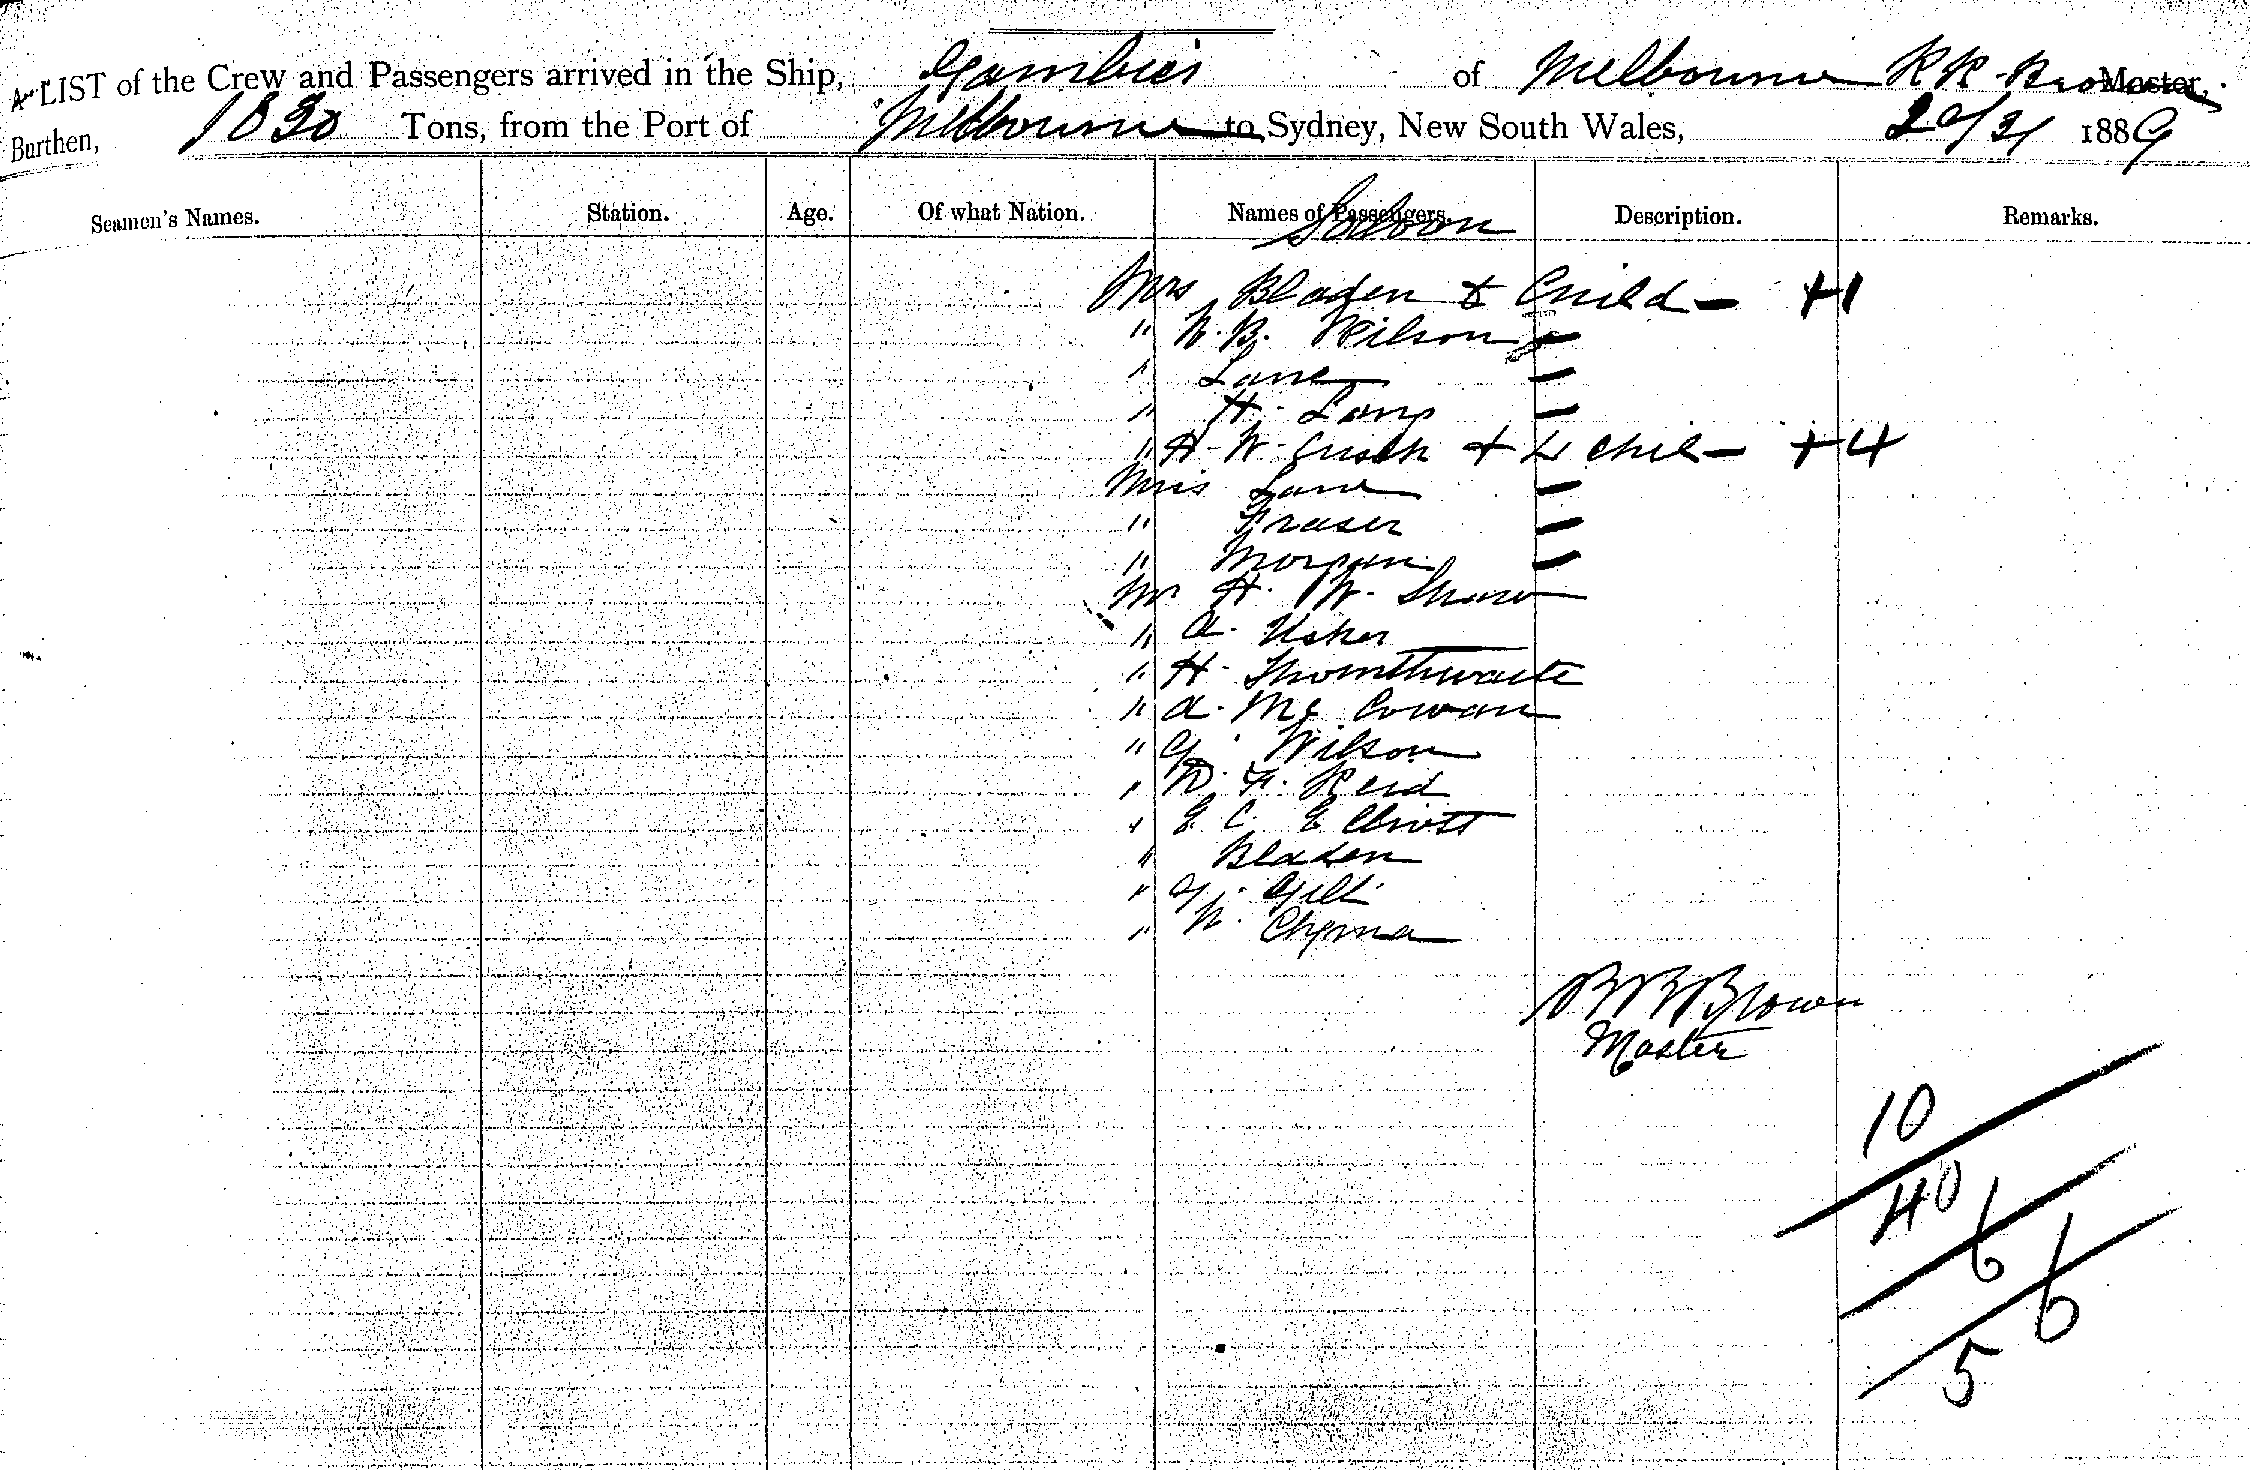 A LIST of the Crew and Passengers arrived in the Ship, Gambier of Melbourne R R Brown Master,
Burthen, 1830 Tons, from the Port of Melbourne to Sydney, New South Wales, 20/3/ 1889
Seamen's Names. Station. Age. Of what Nation. Names of Passengers. Description. Remarks.
Saloon
Mrs Bladen + Child - +1
" W. B. Wilson -
" Lane -
" H. Long -
" H. W. + 4 Chil - +4
Miss Lane -
" Fraser -
" Morgan -
Mr H. W. Shaw
" A. Usher
" H. Thornthwaite
" A. Mc Cowan
" G. Wilson
" D. F. Reid
" E C. Elliott
" Bladen
" G. Gill
" W. Chpma
R R Brown
Master
10
40
6
6
5